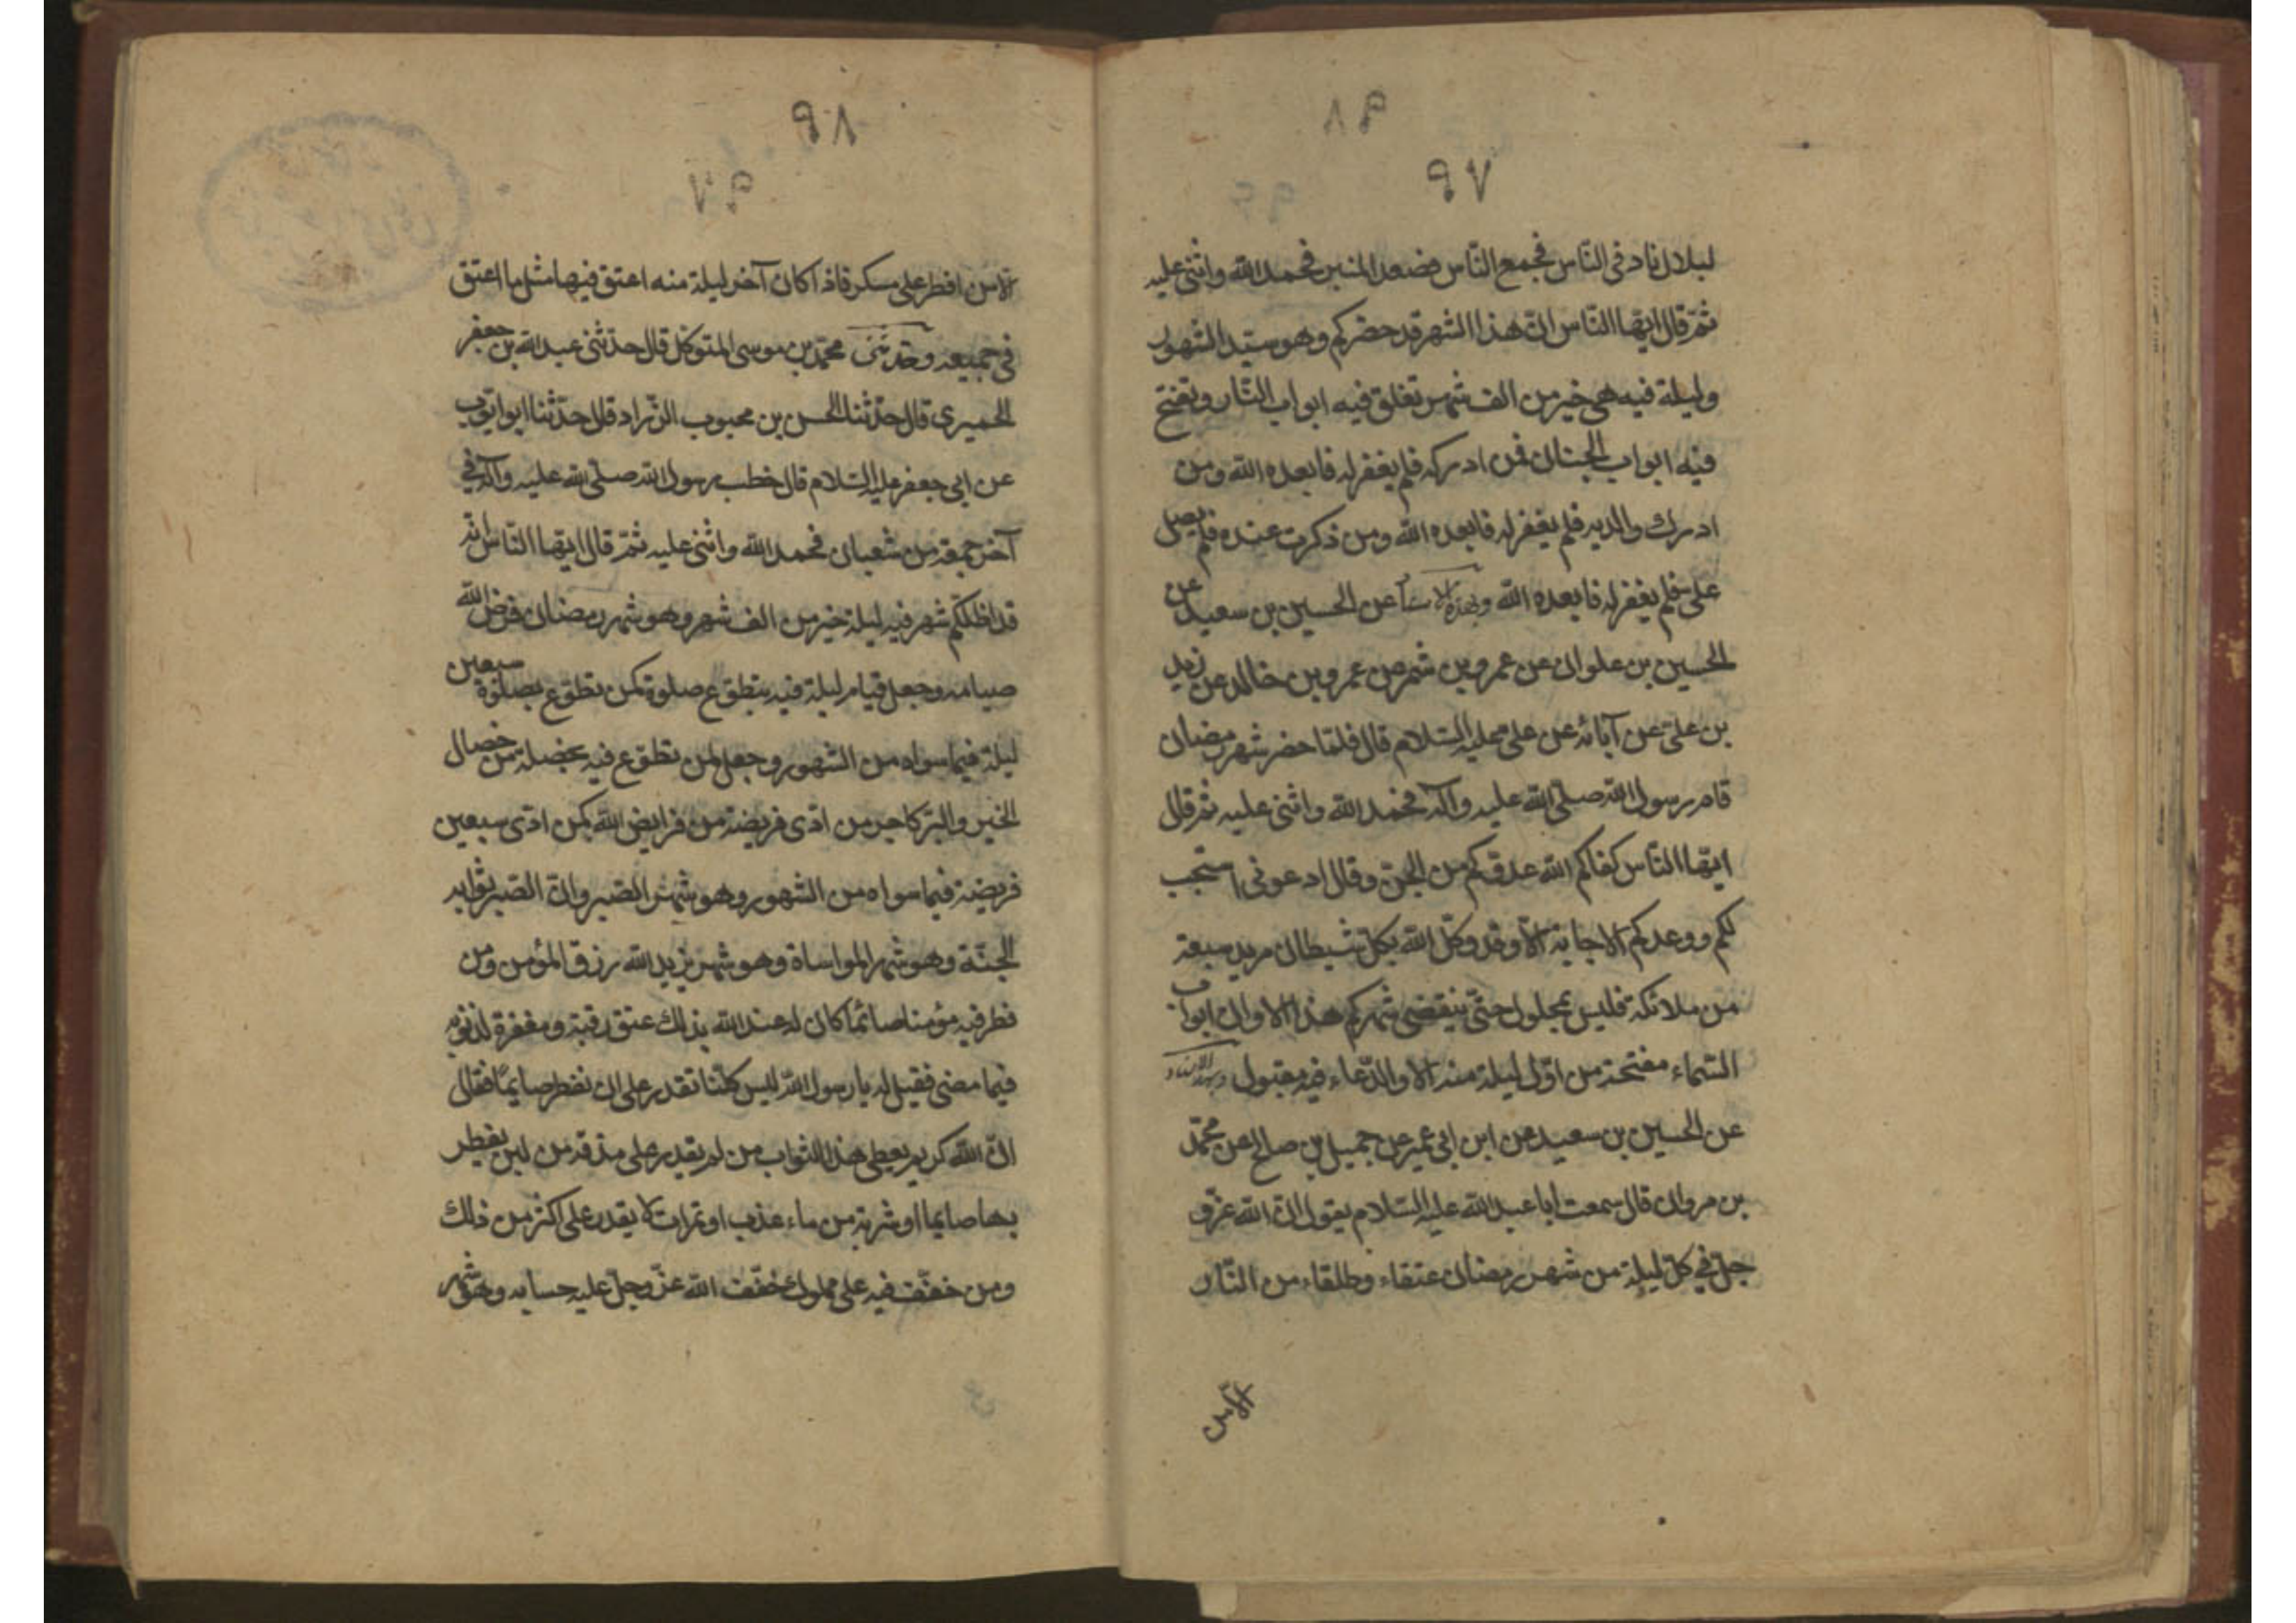 ٩٧
لبلال ناد في النّاس فجمع النّاس فصعد المنبر فحمد الله واثنى عليه
ثمّ قال ايّها النّاس انّ هذا الشهر قد حضركم وهو سيّد الشهور
وليلة فيه هي خير من الف شهر تغلق فيه ابواب النّار وتفتح
فيه ابواب الجنان فمن ادركه فلم يغفر له فابعده الله ومن
ادرك والديه فلم يغفر له فابعده الله ومن ذكرت عنده فلم يصل
علي فلم يغفر له فابعده الله وبهذا الاسناد عن الحسين بن سعيد عن
الحسين بن علوان عن عمرو بن شمر عن عمرو بن خالد عن زيد
بن علي عن آبائه عن علي عليه السّلام قال فلمّا حضر شهر رمضان
قام رسول الله صلّى الله عليه وآله فحمد الله واثنى عليه ثم قال
ايّها النّاس كفاكم الله عدوّكم من الجنّ وقال ادعوني استجب
لكم ووعدكم الاجابة الا وقد وكّل الله بكلّ شيطان مريد سبعة
من ملائكته فليس بمحلول حتّى ينقضي شهركم هذا الا وان ابواب
السّماء مفتحة من اوّل ليلة منه الا والدّعاء فيه مقبول وبهذا الاسناد
عن الحسين بن سعيد عن ابن ابي عمير عن جميل بن صالح عن محمّد
بن مروان قال سمعت ابا عبد الله عليه السّلام يقول انّ الله عزّ و
جلّ في كلّ ليلة من شهر رمضان عتقاء وطلقاء من النّار
الّا من
٩٨
الّا من افطر على مسكر فاذا كان آخر ليلة منه اعتق فيها مثل ما اعتق
في جميعه وحدثنى محمّد بن موسى المتوكّل قال حدّثنى عبد الله بن جعفر
الحميري قال حدّثنا الحسن بن محبوب الزّراد قال حدّثنا ابو ايّوب
عن ابي جعفر عليه السّلام قال خطب رسول الله صلّى الله عليه وآله في
آخر جمعة من شعبان فحمد الله واثنى عليه ثمّ قال ايّها النّاس انّه
قد اظلّكم شهر فيه ليلة خير من الف شهر وهو شهر رمضان فرض الله
صيامه وجعل قيام ليلة فيه بتطوّع صلوة كمن تطوّع بصلوة سبعين
ليلة فيما سواه من الشهور وجعل لمن تطوّع فيه بخصلة من خصال
الخير والبرّ كاجر من ادّى فريضة من فرايض الله كمن ادّى سبعين
فريضة فيما سواه من الشهور وهو شهر الصّبر وانّ الصّبر ثوابه
الجنّة وهو شهر المواساة وهو شهر يزيد الله رزق المؤمن ومن
فطر فيه مؤمنا صائمًا كان له عند الله بذلك عتق رقبة ومغفرة لذنوبه
فيما مضى فقيل له يا رسول الله ليس كلّنا نقدر على ان نفطر صايمًا فقال
انّ الله كريم يعطي هذا الثواب من لم يقدر على مذقة من لبن يفطر
بها صايما او شربة من ماء عذب او تمرات لا يقدر على اكثر من ذلك
ومن خفّف فيه على مملوك خفّف الله عزّ وجلّ عليه حسابه وهو شهر